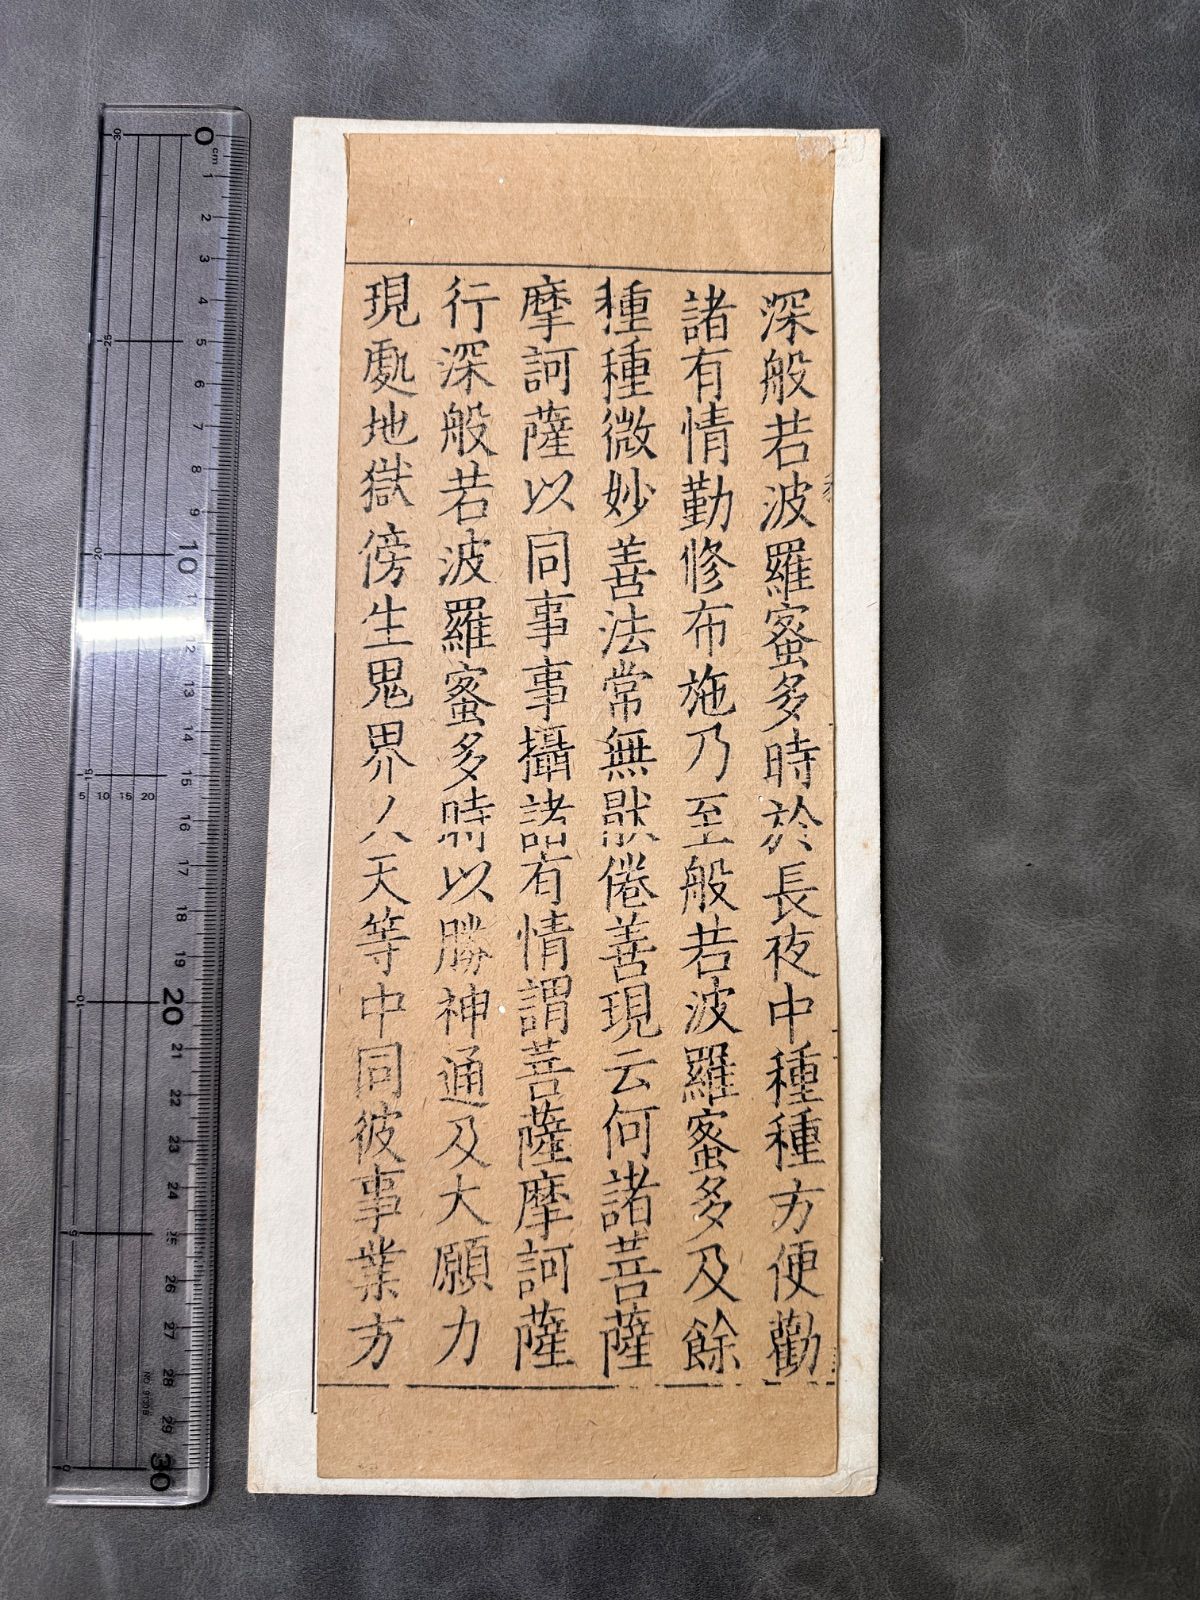 深般若波羅蜜多時於長夜中種種方便勸
諸有情勤修布施乃至般若波羅蜜多及餘
種種微妙善法常無猒倦善現云何諸菩薩
摩訶薩以同事事攝諸有情謂菩薩摩訶薩
行深般若波羅蜜多時以勝神通及大願力
現處地獄傍生鬼界人天等中同彼事業方
0 cm 1 2 3 4 5 6 7 8 9 10 11 12 13 14 15 16 17 18 19 20 21 22 23 24 25 26 27 28 29 30
30 25 20 15 10 5 0
5 10 15 20